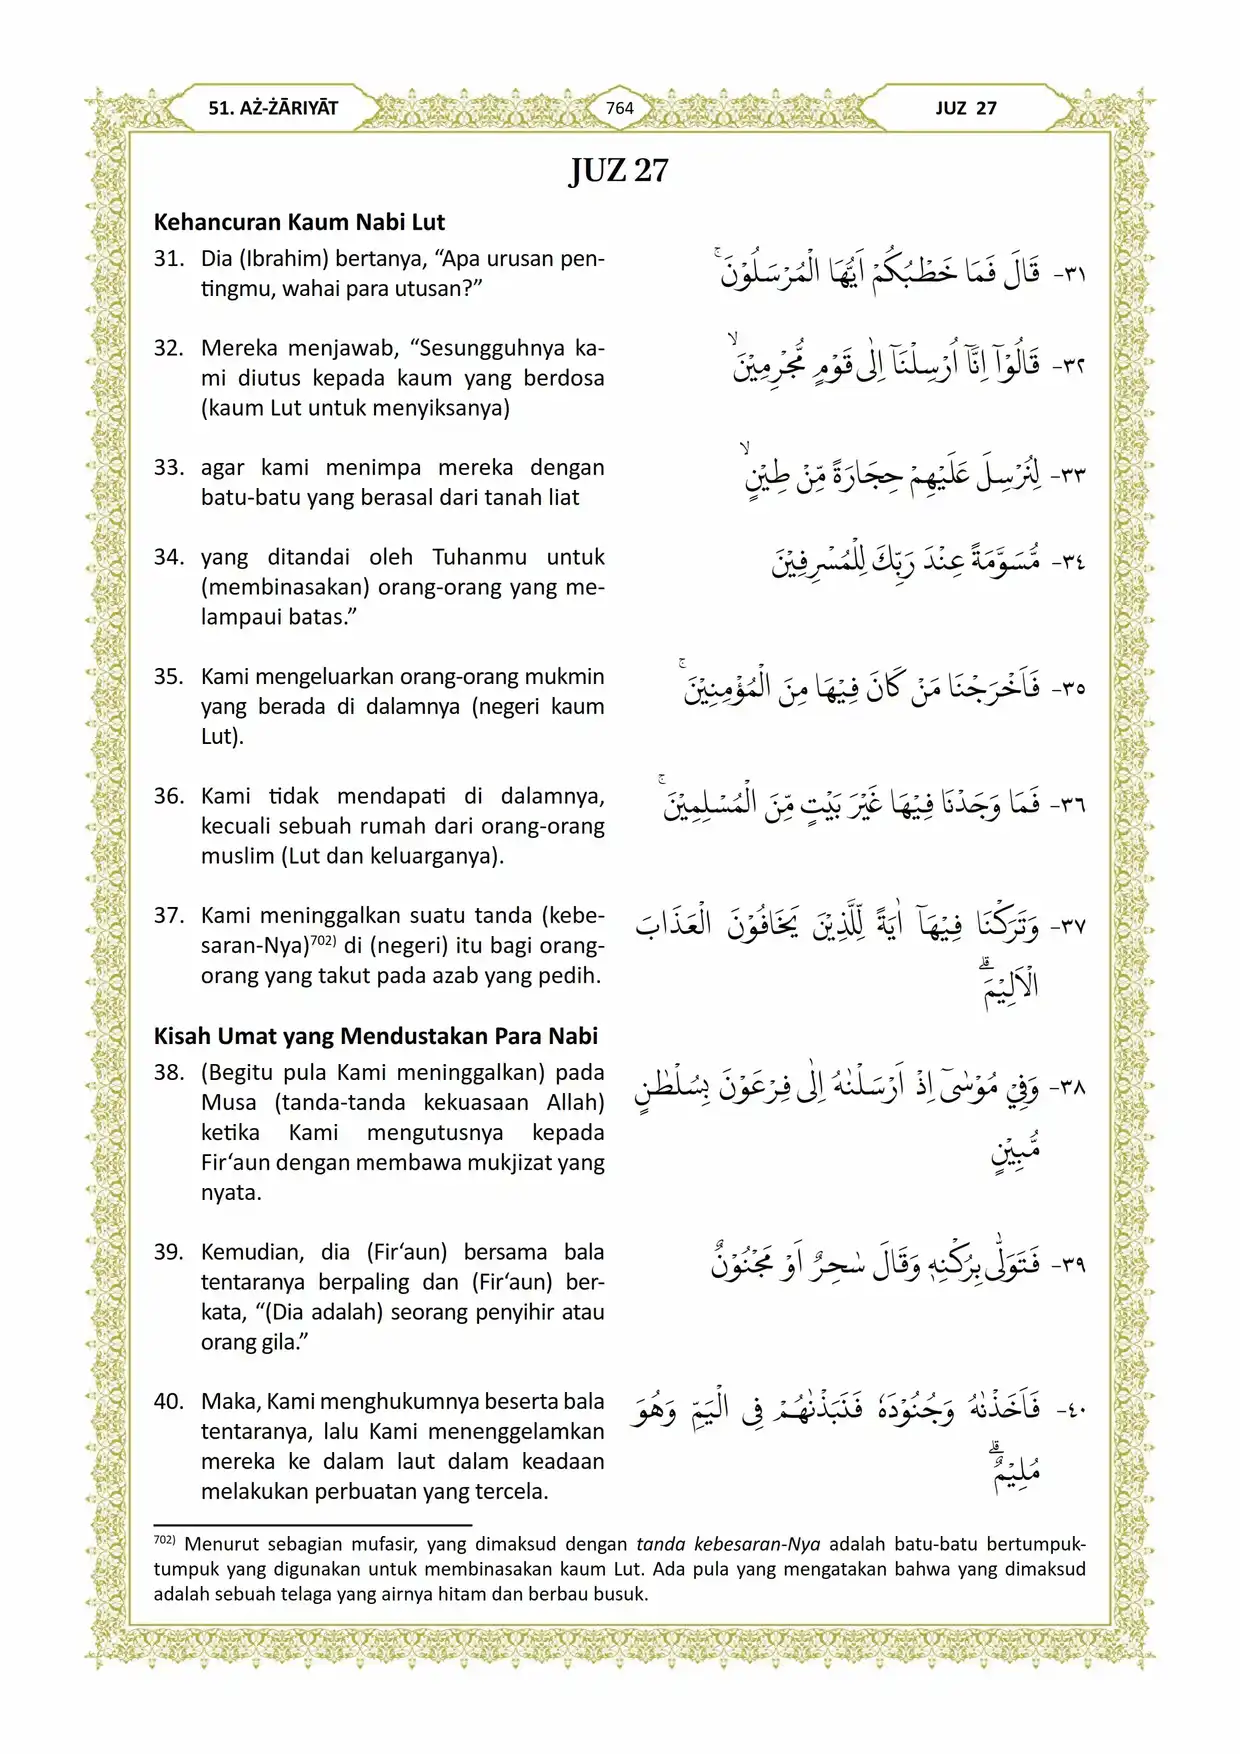 51. AŻ-ŻĀRIYĀT
764
JUZ 27
JUZ 27
Kehancuran Kaum Nabi Lut
31. Dia (Ibrahim) bertanya, “Apa urusan pen-
tingmu, wahai para utusan?”
٣١- قَالَ فَمَا خَطْبُكُمْ اَيُّهَا الْمُرْسَلُوْنَۚ
32. Mereka menjawab, “Sesungguhnya ka-
mi diutus kepada kaum yang berdosa
(kaum Lut untuk menyiksanya)
٣٢- قَالُوْٓا اِنَّآ اُرْسِلْنَآ اِلٰى قَوْمٍ مُّجْرِمِيْنَۙ
33. agar kami menimpa mereka dengan
batu-batu yang berasal dari tanah liat
٣٣- لِنُرْسِلَ عَلَيْهِمْ حِجَارَةً مِّنْ طِيْنٍۙ
34. yang ditandai oleh Tuhanmu untuk
(membinasakan) orang-orang yang me-
lampaui batas.”
٣٤- مُّسَوَّمَةً عِنْدَ رَبِّكَ لِلْمُسْرِفِيْنَ
35. Kami mengeluarkan orang-orang mukmin
yang berada di dalamnya (negeri kaum
Lut).
٣٥- فَاَخْرَجْنَا مَنْ كَانَ فِيْهَا مِنَ الْمُؤْمِنِيْنَۚ
36. Kami tidak mendapati di dalamnya,
kecuali sebuah rumah dari orang-orang
muslim (Lut dan keluarganya).
٣٦- فَمَا وَجَدْنَا فِيْهَا غَيْرَ بَيْتٍ مِّنَ الْمُسْلِمِيْنَۚ
37. Kami meninggalkan suatu tanda (kebe-
saran-Nya)702) di (negeri) itu bagi orang-
orang yang takut pada azab yang pedih.
٣٧- وَتَرَكْنَا فِيْهَآ اٰيَةً لِّلَّذِيْنَ يَخَافُوْنَ الْعَذَابَ
الْاَلِيْمَۗ
Kisah Umat yang Mendustakan Para Nabi
38. (Begitu pula Kami meninggalkan) pada
Musa (tanda-tanda kekuasaan Allah)
ketika Kami mengutusnya kepada
Fir‘aun dengan membawa mukjizat yang
nyata.
٣٨- وَفِيْ مُوْسٰىٓ اِذْ اَرْسَلْنٰهُ اِلٰى فِرْعَوْنَ بِسُلْطٰنٍ
مُّبِيْنٍ
39. Kemudian, dia (Fir‘aun) bersama bala
tentaranya berpaling dan (Fir‘aun) ber-
kata, “(Dia adalah) seorang penyihir atau
orang gila.”
٣٩- فَتَوَلّٰى بِرُكْنِهٖ وَقَالَ سٰحِرٌ اَوْ مَجْنُوْنٌ
40. Maka, Kami menghukumnya beserta bala
tentaranya, lalu Kami menenggelamkan
mereka ke dalam laut dalam keadaan
melakukan perbuatan yang tercela.
٤٠- فَاَخَذْنٰهُ وَجُنُوْدَهٗ فَنَبَذْنٰهُمْ فِى الْيَمِّ وَهُوَ
مُلِيْمٌۗ
702) Menurut sebagian mufasir, yang dimaksud dengan tanda kebesaran-Nya adalah batu-batu bertumpuk-
tumpuk yang digunakan untuk membinasakan kaum Lut. Ada pula yang mengatakan bahwa yang dimaksud
adalah sebuah telaga yang airnya hitam dan berbau busuk.